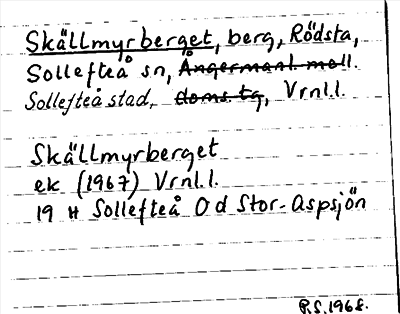 Skällmyrberget, berg, Rödsta,
Sollefteå sn, Ångermanl. mell.
Sollefteå stad, doms. tg, Vrnl.l.
Skällmyrberget
ek (1967) Vrnl.l.
19 H Sollefteå O d Stor-Aspsjön
R.S. 1968.